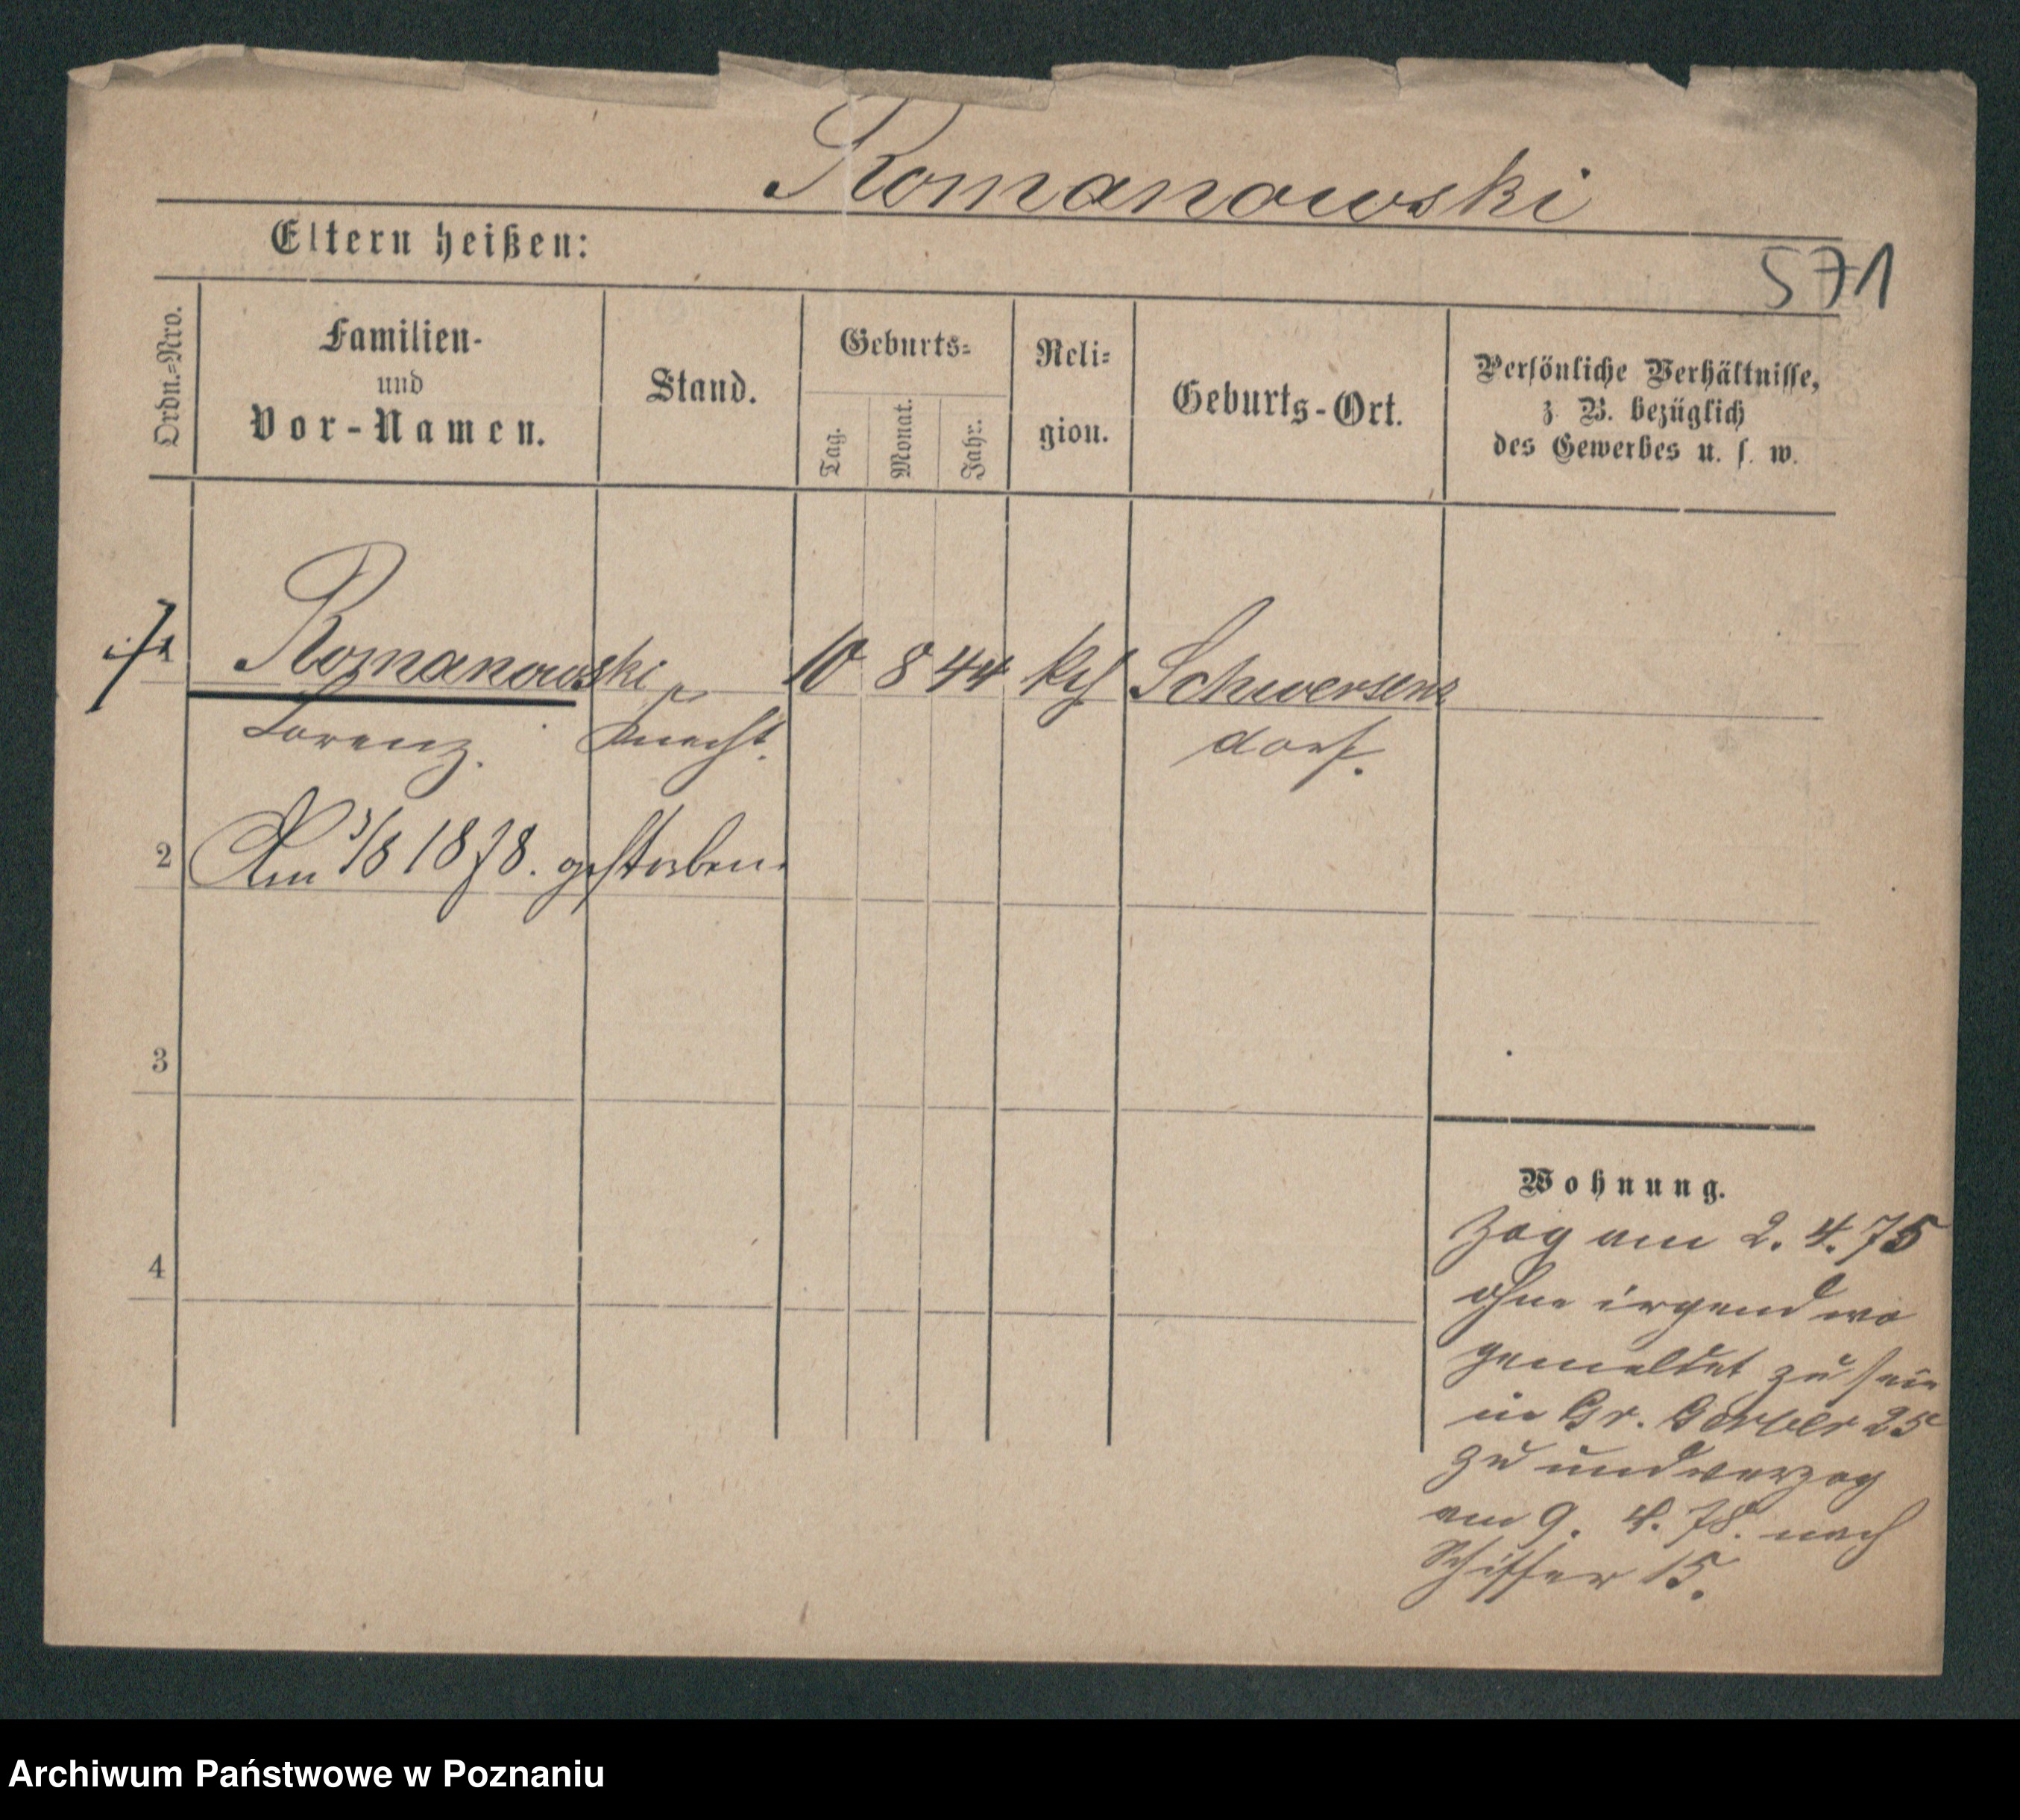 Romanowski
Eltern heißen:
571
Ordn.-Nro.
Familien-
und
Vor-Namen.
Stand.
Geburts-
Tag.
Monat.
Jahr.
Reli-
gion.
Geburts-Ort.
Persönliche Verhältnisse,
z. B. bezüglich
des Gewerbes u. s. w.
1 Romanowski 10 8 44 kth Schwersenz
Lorenz. Knecht. dorf.
2 Am 3/8 1878. gestorben.
3
4
Wohnung.
Zog am 2. 4. 75
ohne irgend wo
gemeldet zu sein
in Gr. Gerber 25
zu und verzog
am 9. 4. 78. nach
Schiffer 15.
Archiwum Państwowe w Poznaniu